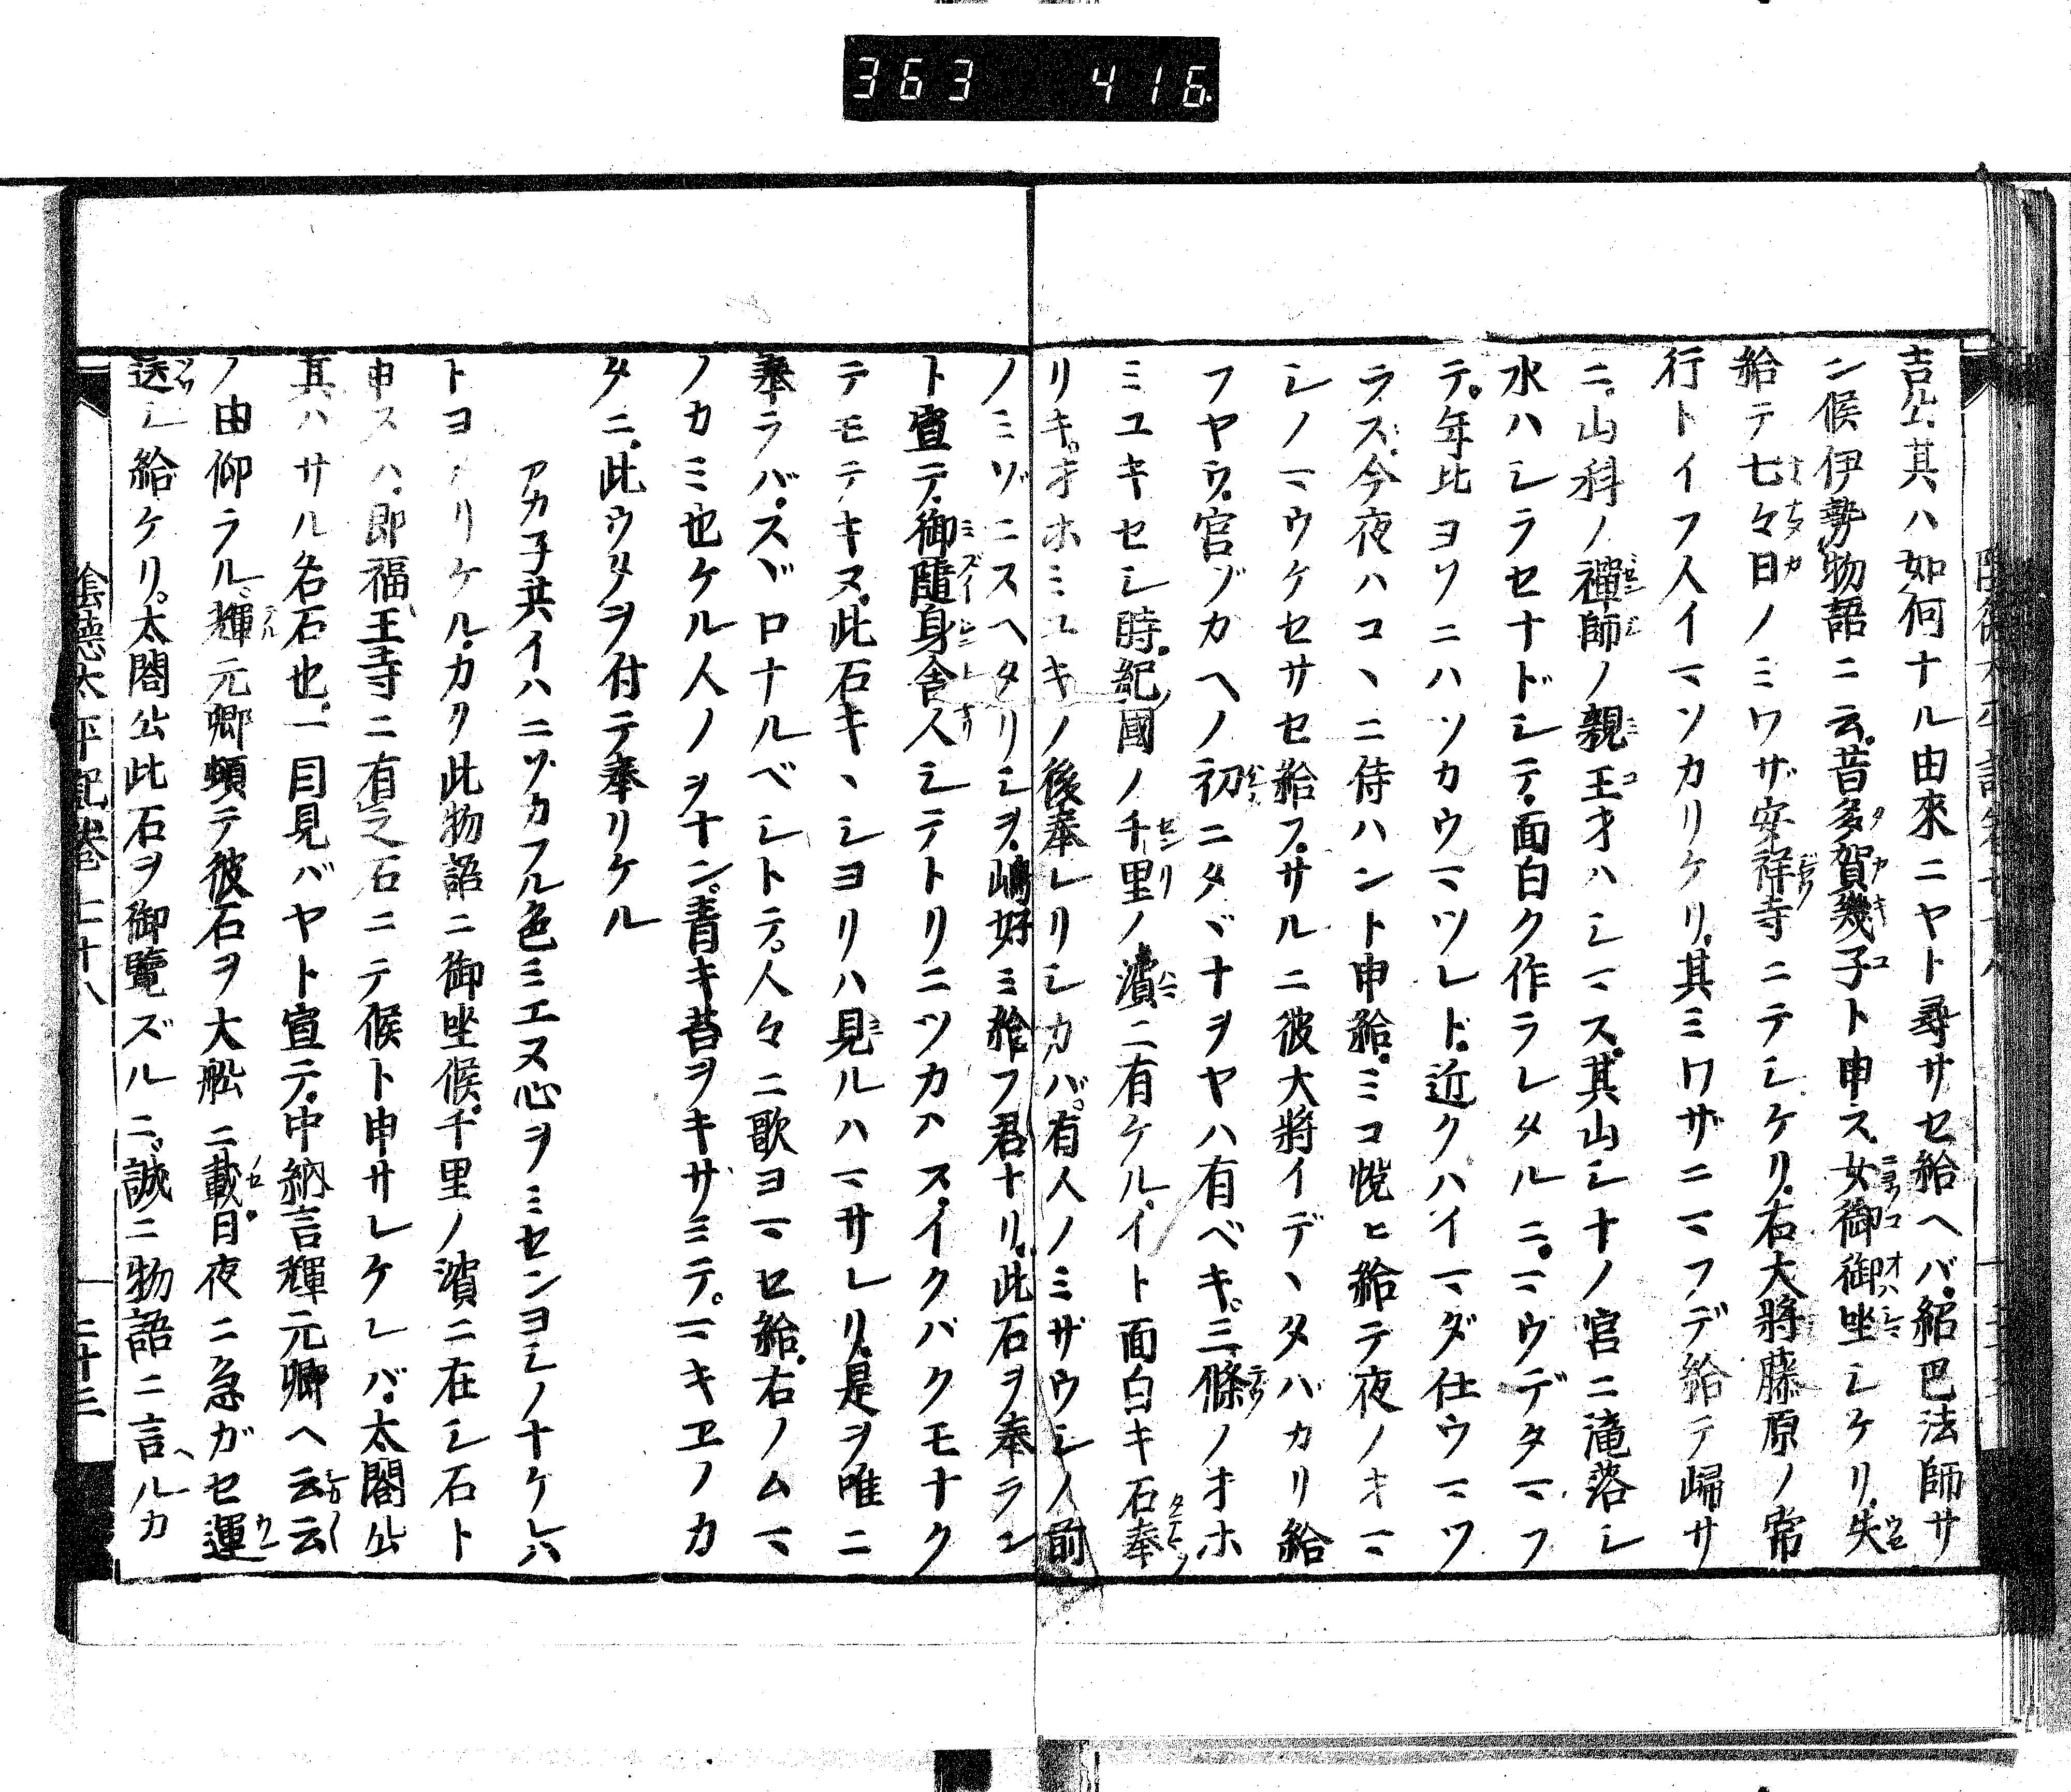 363 416
吉公其ハ如何ナル由來ニヤト尋サセ給ヘバ紹巴法師サ
ン候伊勢物語ニ云昔多賀幾子ト申ス女御御坐シケリ失
給テ七々日ノミワザ安祥寺ニテシケリ右大將藤原ノ常
行トイフ人イマソカリケリ其ミワザニマフデ給テ歸サ
ニ山科ノ禪師ノ親王オハシマス其山シナノ宮ニ滝落シ
水ハシラセナドシテ面白ク作ラレタルニマウデタマフ
テ年比ヨソニハソカウマツレド近クハイマダ仕ウマツ
ラス今夜ハコヽニ侍ハント申給ミコ悅ヒ給テ夜ノオマ
シノマウケセサセ給フサルニ彼大將イデヽタハカリ給
フヤウ宮ヅカヘノ初ニタヾナヲヤハ有ベキ三條ノオホ
ミユキセシ時紀國ノ千里ノ濱ニ有ケルイト面白キ石奉
リキオホミユキノ後奉レリシカバ有人ノミザウシノ前
ノミゾニスヘタリシヲ嶋好ミ給フ君ナリ此石ヲ奉ラン
ト宣テ御隨身舎人シテトリニツカハスイクバクモナク
テモテキヌ此石キヽシヨリハ見ルハマサレリ是ヲ唯ニ
奉ラバスヾロナルベシトテ人々ニ歌ヨマセ給右ノムマ
ノカミ也ケル人ノヲナン青キ苔ヲキザミテマキヱノカ
タニ此ウタヲ付テ奉リケル
アカ子共イハニソカフル色ミエヌ心ヲミセンヨシノナケレハ
トヨメリケルカク此物語ニ御坐候千里ノ濱ニ在シ石ト
申スハ即福王寺ニ有之石ニテ候ト申サレケレバ太閤公
其ハサル名石也一目見バヤト宣テ中納言輝元卿ヘ云云
ノ由仰ラル輝元卿頓テ彼石ヲ大舩ニ載日夜ニ急ガセ運
送シ給ケリ太閤公此石ヲ御覽ズルニ誠ニ物語ニ言ルカ
陰德太平記卷七十八
二十三